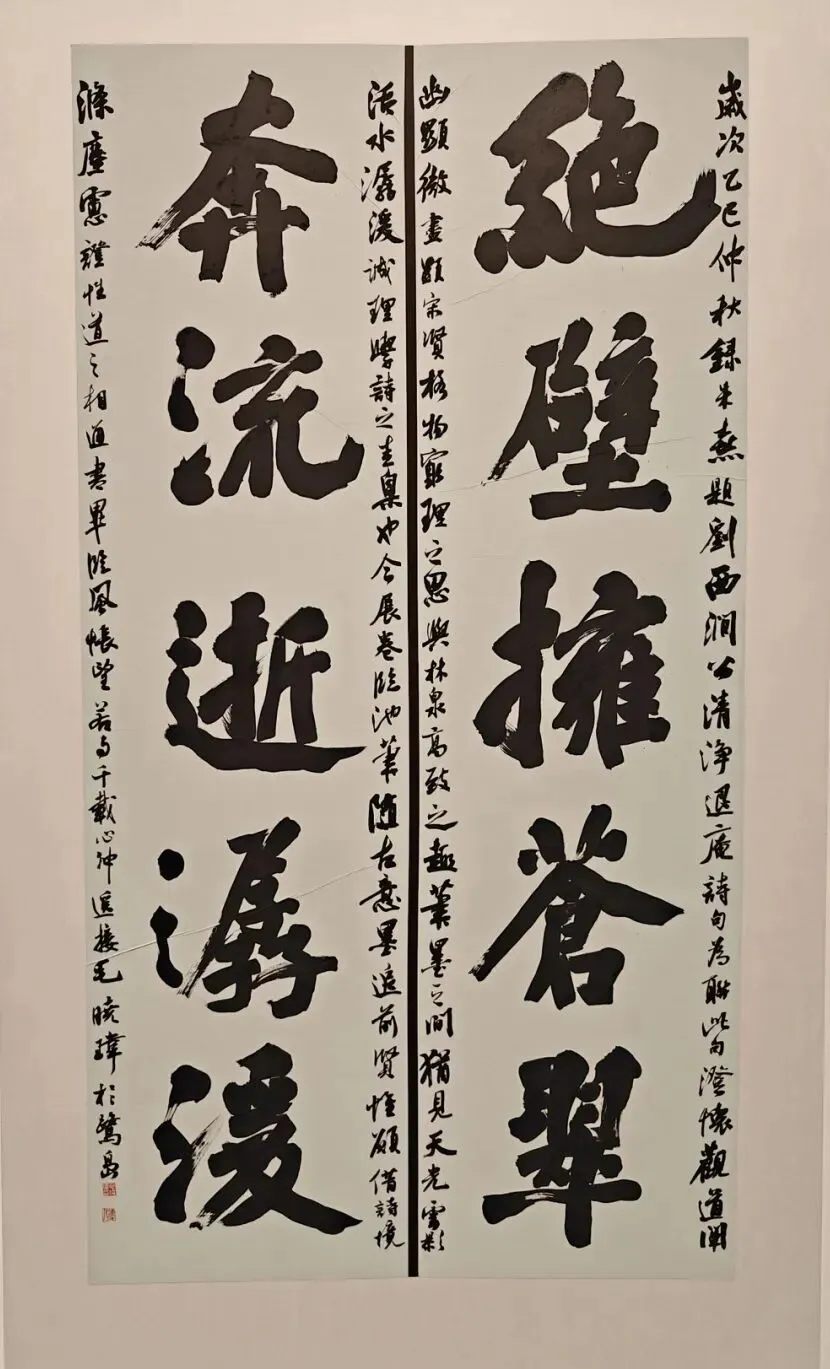 歲次乙巳仲秋録朱熹題劉西澗公清淨退庵詩句為聯此句澄懷觀道闡
絶壁擁蒼翠
幽顯微盡顯宋賢格物窮理之思與林泉高致之趣筆墨之間猶見天光雲影
活水潺湲誠理學詩之圭臬也今展卷臨池筆隨古意墨追前賢惟願借詩境
奔流逝潺湲
滌塵慮證性道之相通書畢臨風悵望若與千載心神遥接毛曉瑋於鷺島